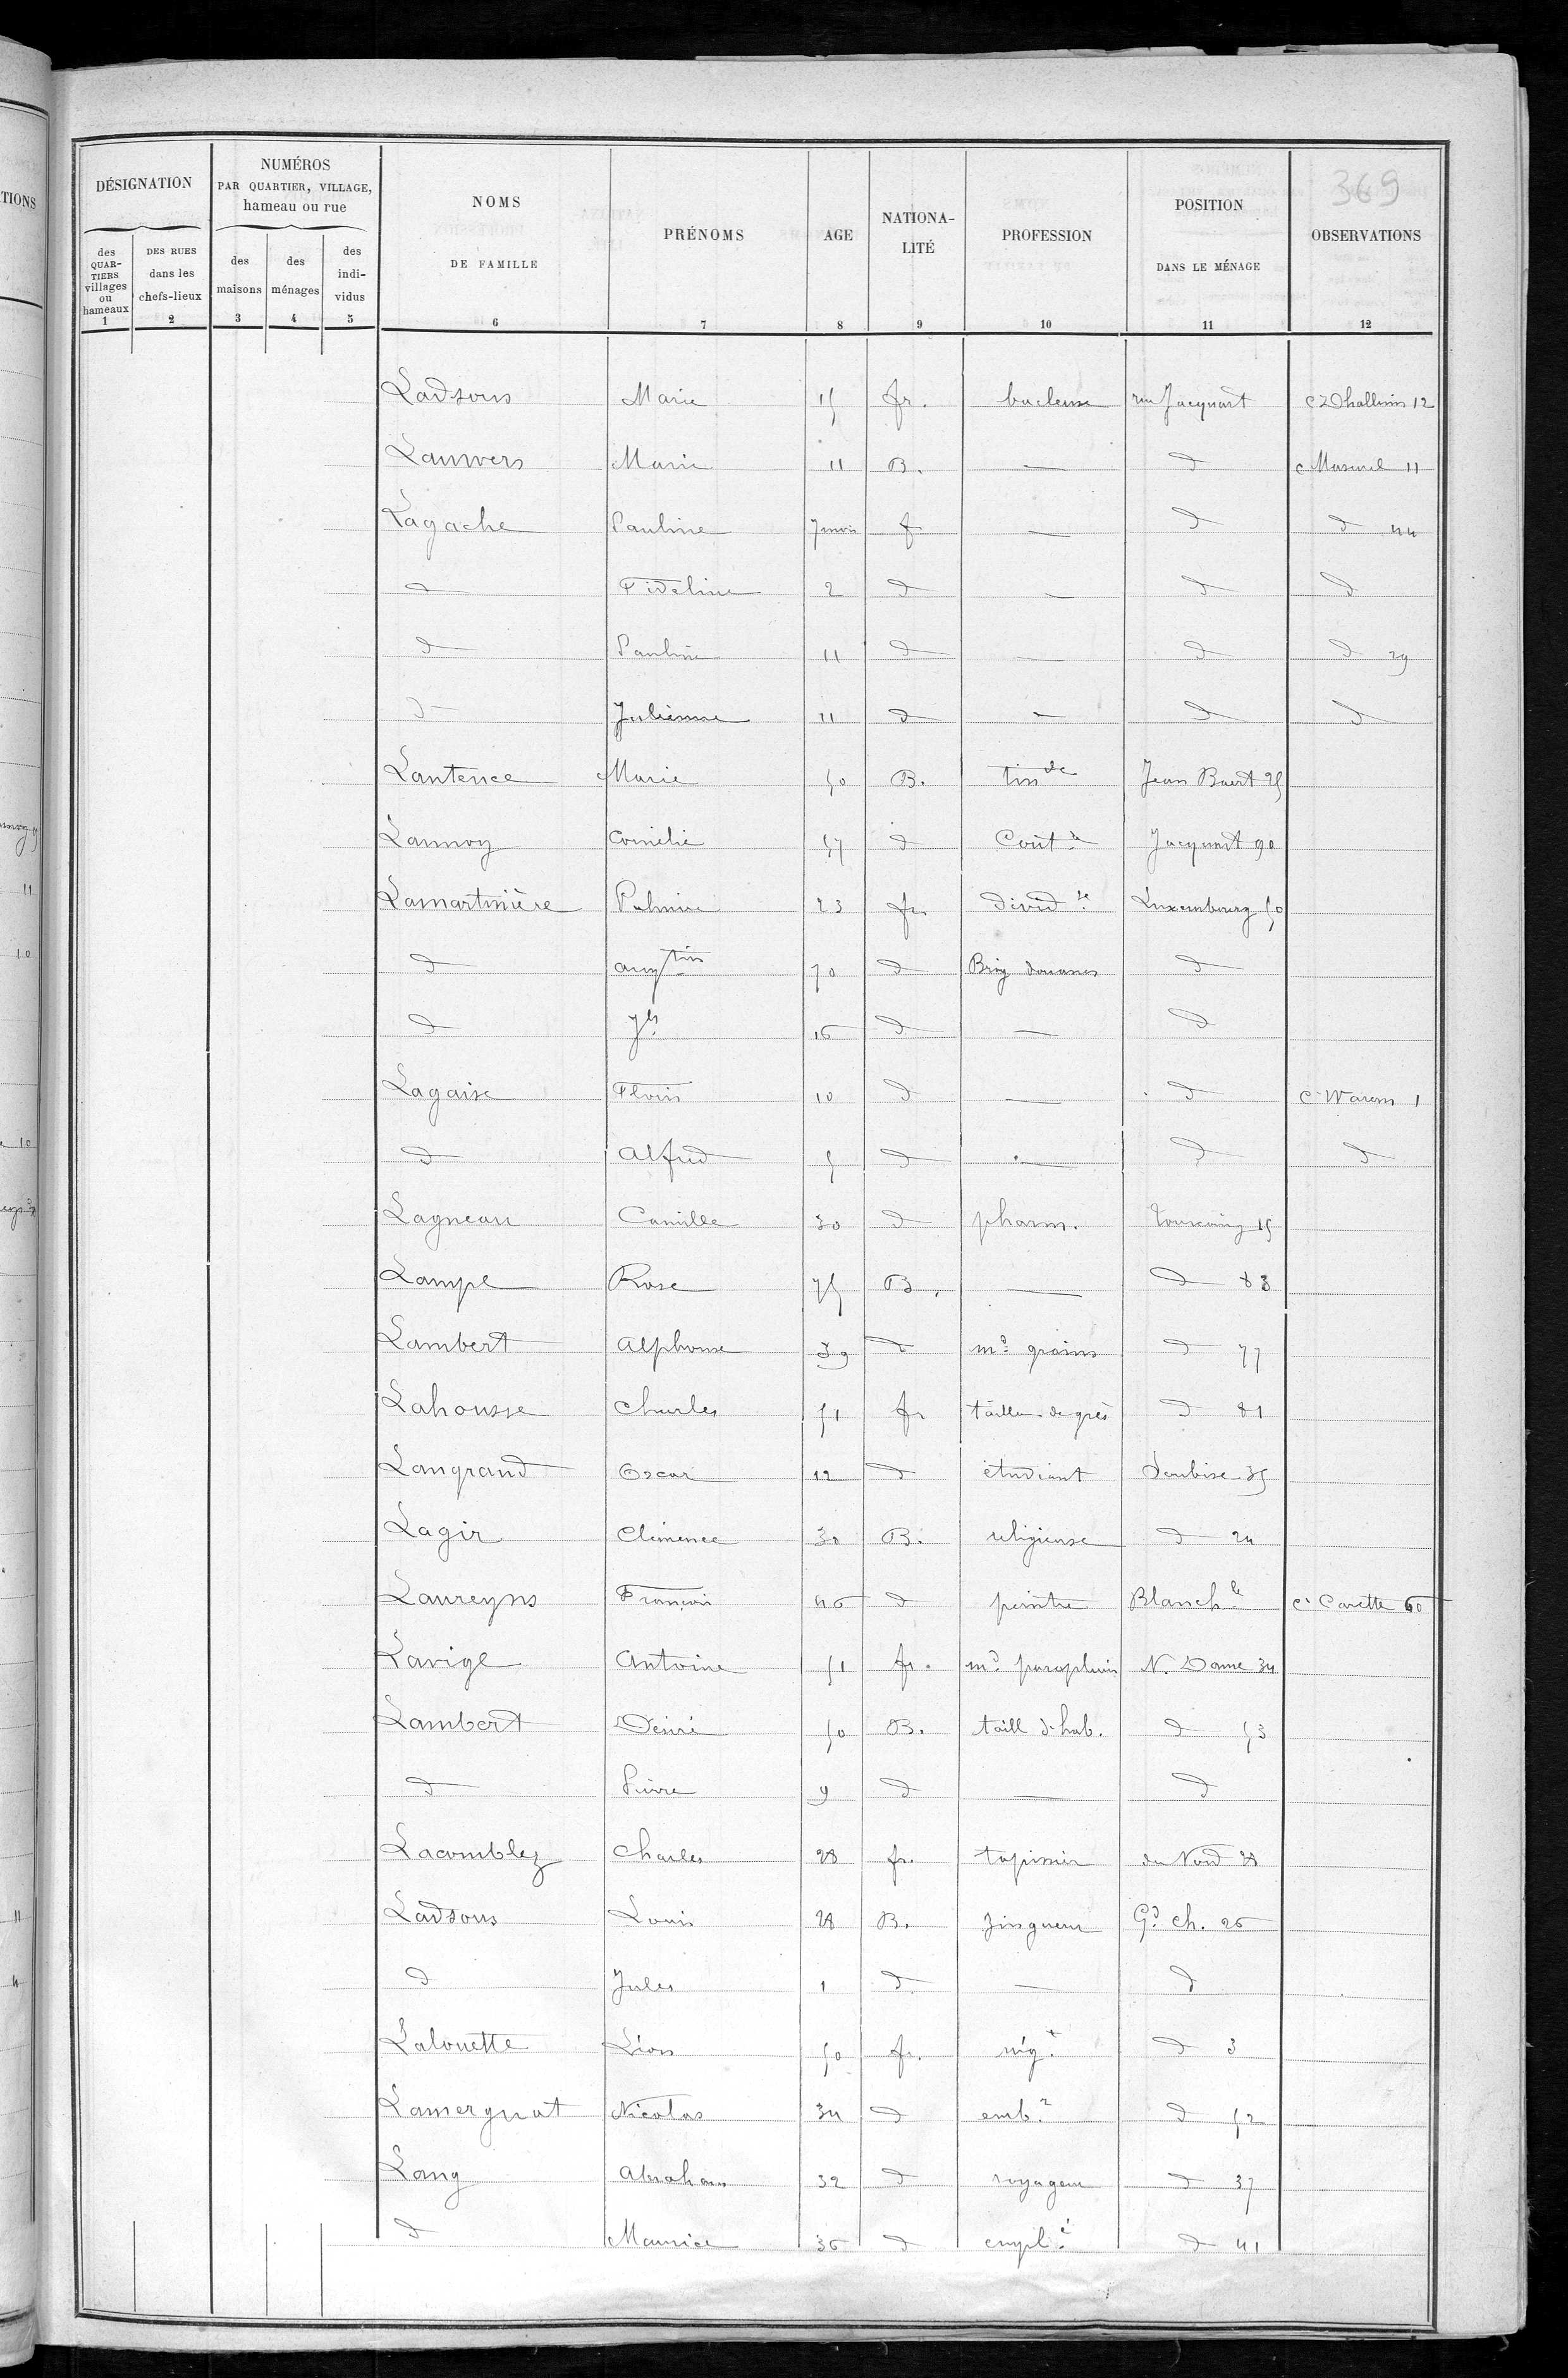 369
DÉSIGNATION
NUMÉROS PAR QUARTIER, VILLAGE, hameau ou rue
NOMS DE FAMILLE
PRÉNOMS
AGE
NATIONA-LITÉ
PROFESSION
POSITION DANS LE MÉNAGE
OBSERVATIONS
des QUAR-TIERS villages ou hameaux
DES RUES dans les chefs-lieux
des maisons
des ménages
des indi-vidus
1 2 3 4 5 6 7 8 9 10 11 12
Ladsous Marie 15 fr. bacleuse rue Jacquart c Dhalluin 12
Lauwers Marie 11 B. — d c Masurel 11
Lagache Pauline 7 mois f — d d 44
d Fideline 2 d — d d
d Pauline 11 d — d d 29
d Julienne 11 d — d d
Lantence Marie 50 B. tin de Jean Baert 25
Lannoy Cornélie 57 d Cout Jacquart 90
Lamartinière Palmire 23 fr. dévid se Luxembourg 50
d aug tin 70 d Brig douanes d
d Jh 16 d — d
Lagaise Floris 10 d — d c Warem 1
d Alfred 5 d — d d
Lagneau Camille 30 d pharm. Tourcoing 15
Lampe Rose 75 B. — d 83
Lambert Alphonse 39 d md grains d 77
Lahousse Charles 51 fr tailleur de grès d 81
Langrand Oscar 12 d étudiant Soubise 35
Lagir Clémence 30 B. religieuse d 24
Laureyns François 46 d peintre Blanch le c Carette 60
Lavige Antoine 51 fr. md parapluies N. Dame 34
Lambert Désiré 50 B. taill d'hab. d 53
d Pierre 9 d — d
Lacomblez Charles 28 fr. tapissier du Nord 28
Ladsous Louis 28 B. zingueur Gd Ch. 26
d Jules 1 d — d
Lalouette Léon 50 fr. nég t d 3
Lamergnat Nicolas 34 d emb r d 52
Lang Abraham 32 d voyageur d 37
d Maurice 36 d empl é d 41